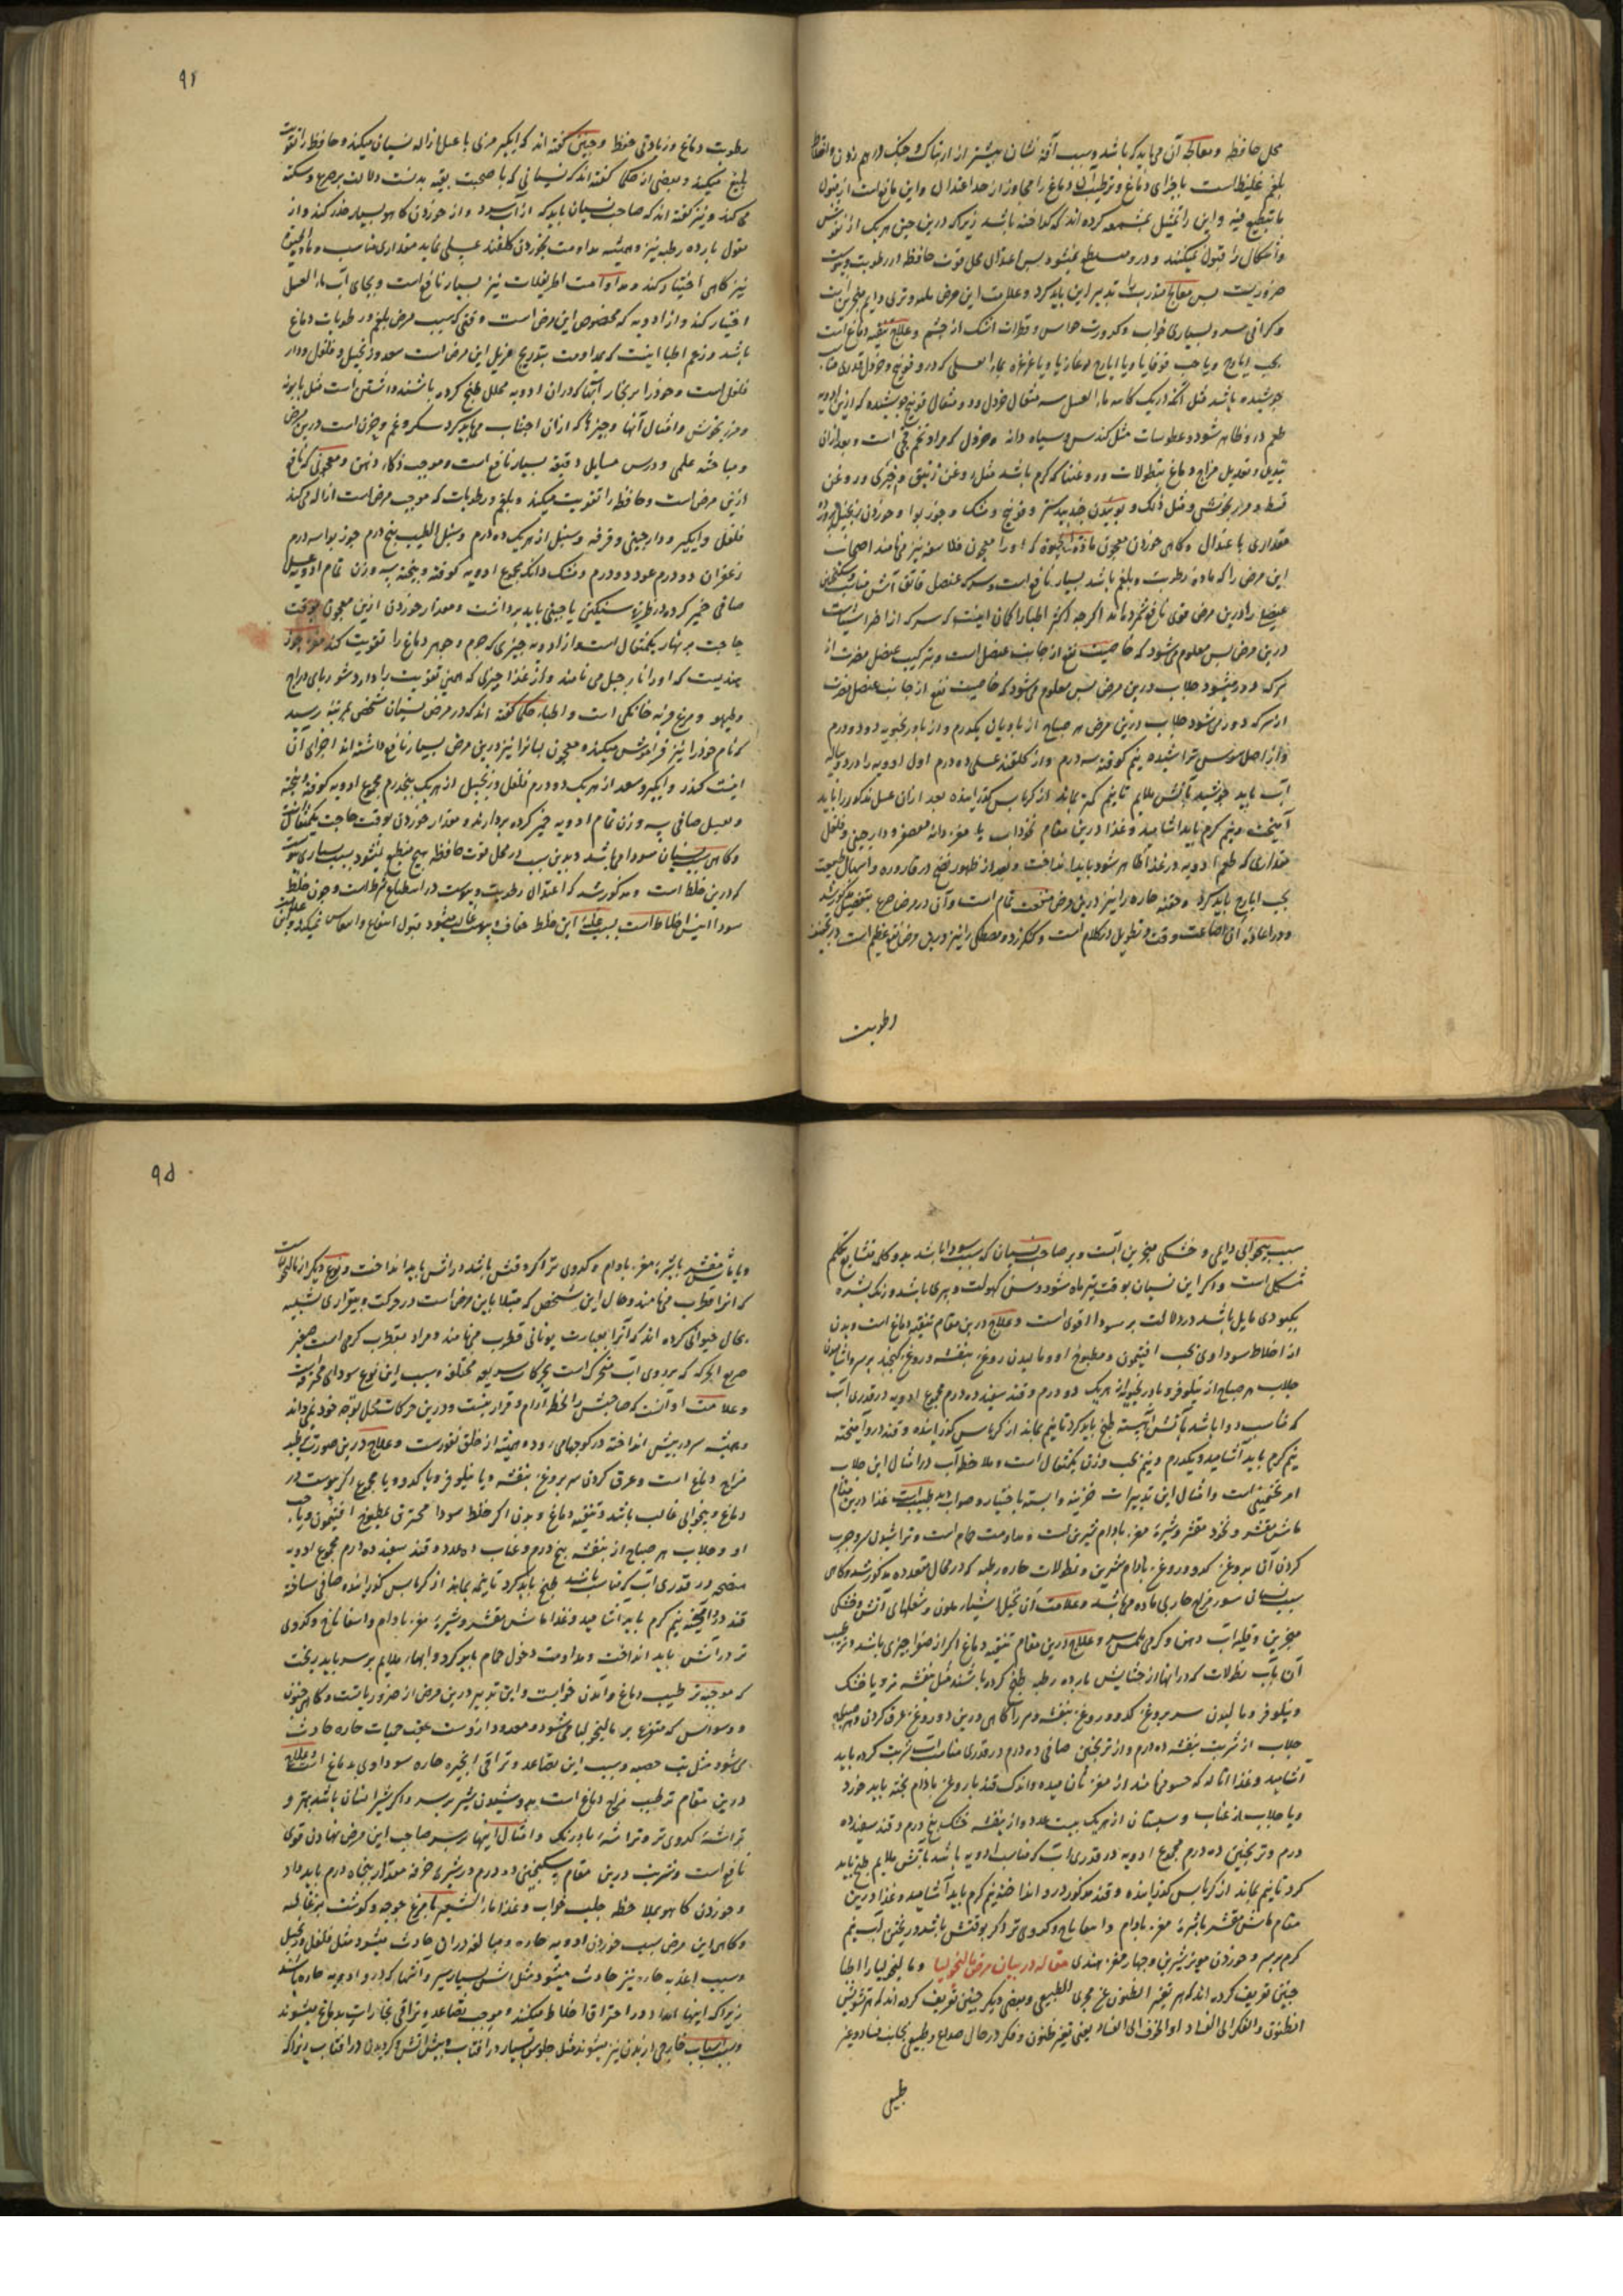 محل حافظه و معالجه آن می باید که باشد و سبب آفة نسیان بیشتر از
بلغم غلیظ است باجزای دماغ و ترطیب دماغ را مجاوز از حد اعتدال و این مانع است از قبول
و این را تمثیل بشمعه کرده اند که گداخته باشد زیرا که درین حین هر یک از نقوش
و اشکال را قبول نمیکند و درو منطبع نمیشود پس اعتدال محل قوت حافظه در رطوبت و یبوست
ضروریست پس معالج را تدبیر این باید کرد و علامت این مرض
و گرانی سر و بسیاری خواب و کدورت حواس و قطرات اشک از چشم و علاج تنقیه دماغ است
بحب ایارج و یا حب قوقایا و یا ایارج لوغازیا و یا غرغره بماء العسلی که درو فوتنج و خردل قدری
جوشیده باشد مثل آنکه در یک کاسه ماء العسل سه مثقال خردل و دو مثقال فوتنج جوشیده که ازین ادویه
طعم درو ظاهر شود و عطوسات مثل کندس و سیاه دانه و خردل که مراد تخم است و بعد از آن
تبدیل و تعدیل مزاج دماغ بنطولات و روغنها که گرم باشد مثل روغن زنبق و خیری و روغن
قسط و مرزنجوش و مثل ذلک و بوئیدن جندبیدستر و فوتنج و مشک و جوز بوا و خوردن زنجبیل پرورده
مقداری با عتدال و گاهی خوردن معجون مادة الحیوة که او را معجون فلاسفه نیز می نامند اصحاب
این مرض را که ماده رطوبت و بلغم باشد بسیار نافع است و سرکه عنصل
را درین مرض قوی نافع شمرده اند اگرچه اکثر اطبا را گمان اینست که سرکه از
درین مرض پس معلوم میشود که خاصیت نفع از جانب عنصل است و بترکیب عنصل مضرت از
سرکه دور میشود جلاب درین مرض پس معلوم می شود که خاصیت نفع از جانب عنصل
از سرکه دور می شود جلاب درین مرض هر صباح از بادیان یکدرم و از بادرنجبویه دو درم
و از اصل سوس تراشیده نیم کوفته سه درم و از گلقند عسلی ده درم اول ادویه را در دو پیاله
آب باید جوشید بآتش ملایم تا نیم گرم بماند از کرباس گذرانیده بعد از آن عسل مذکور را باید
آمیخت و نیم گرم باید آشامید و غذا درین مقام نخوداب با مغز دانه معصفر و دارچینی و فلفل
مقداری که طعم ادویه در غذا ظاهر شود باید انداخت و بعد از ظهور نضج در قاروره و اسهال طبیعت
بحب ایارج باید کرد و حقنه حاره را نیز درین مرض منفعت تمام است و آن در مرض صرع بتفصیل مذکور شد
و در اعاده آن اضاعت وقت و تطویل کلام است و کندر و مصطکی را نیز درین مرض نفع عظیم است در تجفیف
رطوبت
٩٤
رطوبت دماغ و زیادتی حفظ و چنین گفته اند که ایکیر مربی با عسل ازاله نسیان میکند و حافظه را تقویت
بلیغ میکند و بعضی از حکما گفته اند که نسیانی که با صحبت بقیه بدنست دلالت بر صرع و سکته
می کند و نیز گفته اند که صاحب نسیان باید که از آب سرد و از خوردن کاهو بسیار حذر کند و از
بقول بارده رطبه نیز و همیشه مداومت بخوردن گلقند عسلی نماید مقداری مناسب
نیز گاهی اختیار کند و مداومت اطریفلات نیز بسیار نافع است و بجای آب ماء العسل
اختیار کند و از ادویه که مخصوص این مرض است وقتی که سبب مرض بلغم و رطوبات دماغ
باشد و زعم اطبا اینست که بمداومت بتدریج مزیل این مرض است سعد و زنجبیل و فلفل و دار
فلفل است و خود را بر بخار آبها که در آن ادویه محلل طبخ کرده باشند داشتن است مثل بابونه
و مرزنجوش و امثال آنها و چیزها که از آن اجتناب می باید کرد سکر و غم و حزن است درین مرض
و مباحثه علمی و درس مسایل دقیقه بسیار نافع است و موجب ذکاء ذهن و معجونی که نافع
ازین مرض است و حافظه را تقویت میکند و بلغم و رطوبات که موجب مرض است ازاله می کند
فلفل و ایکیر و دارچینی و قرفه و سنبل از هر یک ده درم و سنبل الطیب پنج درم جوز بوا سه درم
زعفران دو درم عود دو درم و مشک دانگ مجموع ادویه کوفته و بیخته به سه وزن تمام ادویه عسل
صافی خمیر کرده در ظرف سنگین یا چینی باید برداشت و مقدار خوردن ازین معجون بوقت
حاجت بر نهار یکمثقال است و از ادویه چیزی که جرم و جوهر دماغ را تقویت کند مغز جوز
هندیست که او را نارجیل می نامند و از غذا چیزی که همین تقویت را دارد شوربای دراج
و طیهو و مرغ فربه خانگی است و اطباء حکما گفته اند که در مرض نسیان شخص بمرتبه رسید
که نام خود را نیز فراموش میکند و معجون لبان را نیز درین مرض بسیار نافع داشته اند اجزای آن
اینست کندر و ایکیر و سعد از هر یک ده درم فلفل و زنجبیل از هر یک پنجدرم مجموع ادویه کوفته بیخته
و بعسل صافی به سه وزن تمام ادویه خمیر کرده بردارند و مقدار خوردن بوقت حاجت یکمثقال است
و گاهی سبب نسیان سودا می باشد و بدین سبب در محل قوت حافظه هیچ منطبع نمیشود بسبب بسیاری یبوست
که درین خلط است و مذکور شد که اعتدال رطوبت و یبوست در انطباع شرط است و چون خلط
سودا ایبس اخلاط است بسبب غلبه این خلط جفاف و یبوست غالب میشود قبول انطباع و انتقاش نمیکند و علامت این
سبب بیخوابی دایمی و خشکی منخرین است و بر صاحب نسیان که بسبب سودا باشد بدو کلمه متتابع تکلم
مشکل است و اگر این نسیان بوقت تیره ماه شود و سن کهولت و پیری باشد و رنگ بشره
بکبودی مایل باشد در دلالت بر سودا اقوی است و علاج درین مقام تنقیه دماغ است و بدن
از اخلاط سوداوی بحب افتیمون و مطبوخ او و مالیدن روغن بنفشه و روغن کنجد بر سر و آشامیدن
جلاب هر صباح از نیلوفر و بادرنجبویه از هر یک دو درم و قند سفید ده درم مجموع ادویه در قدری آب
که مناسب دوا باشد بآتش آهسته طبخ باید کرد تا نیم بماند از کرباس گذرانیده و قند درو آمیخته
نیم گرم باید آشامید و یکدرم و نیم بحب وزن یکمثقال است و ملاحظه آب در امثال این جلاب
امر تخمینی است و امثال این تدبیرات جزئیه وابسته باختیار و صوابدید طبیب است غذا درین مقام
ماش مقشر و نخود مقشر و شیره مغز بادام شیرین است و مداومت حمام است و تراشیدن سر و چرب
کردن آن بروغن کدو و روغن بادام شیرین و نطولات حاره رطبه که در محال متعدده مذکور شد و گاهی
سبب نسیان سوء مزاج حار بی ماده می باشد و علامت آن تخیل اشیاء ملون و شعلهای آتش و خشکی
منخرین و قلت آب دهن و گرمی ملمس سر و علاج درین مقام تنقیه دماغ اگر از صفرا چیزی باشد و ترطیب
آن بآب نطولات که در آنها از حشایش بارده رطبه طبخ کرده باشند مثل بنفشه تر و یا خشک
و نیلوفر و مالیدن سر بروغن کدو و روغن بنفشه و سر را گاهی درین دو روغن غرق کردن و هر صباح
جلاب از شربت بنفشه ده درم و از ترنجبین صافی ده درم در قدری مناسب آب شربت کرده باید
آشامید و غذا آماله که حسو می نامند از مغز نان میده و اندک قند با روغن بادام پخته باید خورد
و یا جلاب از عناب و سبستان از هر یک بیست عدد و از بنفشه خشک پنج درم و قند سفید ده
درم و ترنجبین ده درم مجموع ادویه در قدری آب که مناسب ادویه باشد بآتش ملایم طبخ باید
کرد تا نیم بماند از کرباس گذرانیده و قند مذکور درو انداخته نیم گرم باید آشامید و غذا درین
مقام ماش مقشر با شیره مغز بادام و اسفاناخ و کدوی تر اگر بوقتش باشد و ریختن آب نیم
گرم بر سر و خوردن مویز شیرین و چهار مغز هندی مقاله در بیان مرض مالیخولیا و مالیخولیا را اطبا
چنین تعریف کرده اند که هو تغیر الظنون عن مجری الطبیعی و بعضی دیگر چنین تعریف کرده اند که هو تشویش
الظنون و الفکر الی الفساد او الخوف الی الفساد یعنی تغیر ظنون و فکر در حال صلاح و طبیعی بجانب فساد و غیر
طبیعی
٩٥
و یا ماش مقشر با شیره مغز بادام و کدوی تر اگر وقتش باشد در آتش باید انداخت و نوع دیگر از مالیخولیاست
که آنرا قطرب می نامند و حال این شخص که مبتلا باین مرض است در حرکت و بیقراری تشبیه
بحال حیوانی کرده اند که آنرا بعبارت یونانی قطرب می نامند و مراد بقطرب کرمی است صغیر
سریع الحرکه که بر روی آب متحرک است بحرکات سریعه مختلفه و سبب این نوع سودای محترقه است
و علامت او آنست که صاحبش یک لحظه آرام و قرار نیست و درین حرکات محل توجه خود نمی داند
و همیشه سر در پیش انداخته در کوچها می رود و همیشه از خلق نفورست و علاج درین صورت ترطیب
مزاج دماغ است و غرق کردن سر بروغن بنفشه و یا نیلوفر و یا کدو و یا مجموع اگر یبوست در
دماغ و بیخوابی غالب باشد و تنقیه دماغ و بدن اگر خلط سودا محترق بمطبوخ افتیمون و یا حب
او و جلاب هر صباح از بنفشه پنج درم و عناب ده عدد و قند سفید ده درم مجموع ادویه
در قدری آب که مناسب باشد طبخ باید کرد تا نیمه بماند از کرباس گذرانیده صافی ساخته
قند درو آمیخته نیم گرم باید آشامید و غذا ماش مقشر و شیره مغز بادام و اسفاناخ و کدوی
تر در آتش باید انداخت و مداومت دخول حمام باید کرد و آبهاء ملایم بر سر باید ریخت
که موجب ترطیب دماغ و آوردن خوابست و این تدبیر درین مرض از ضروریاتست و گاهی جنون
و وسواس که متفرع بر مالیخولیا می شود و معدود ازوست عقب حمیات حاره حادث
می شود مثل تب حصبه و سبب این تصاعد و تراقی ابخره حاره سوداوی بدماغ است و علاج
درین مقام ترطیب مزاج دماغ است بدوشیدن شیر بر سر و اگر شیر انسان باشد بهتر و
تراشه کدوی تر و تراشه بادرنگ و امثال اینها بر سر صاحب این مرض نهادن قوی
نافع است و شربت درین مقام سکنجبین ده درم در شیره خرفه مقدار پنجاه درم باید داد
و خوردن کاهو بملاحظه جلب خواب و غذا ماء الشعیر با مرغ جوجه و گوشت بزغاله
و گاهی این مرض بسبب خوردن ادویه حاره و مبالغه در آن حادث میشود مثل فلفل و زنجبیل
و بسبب اغذیه حاره نیز حادث میشود مثل آش بسیار سیر و آشها که درو ادویه حاره باشد
زیرا که اینها امداد در احتراق اخلاط میکنند و موجب تصاعد و تراقی بخارات بدماغ میشوند
و بسبب اسباب خارجی از بدن نیز میشوند مثل جلوس بسیار در آفتاب و پیش آتش و گردیدن در آفتاب زیرا که